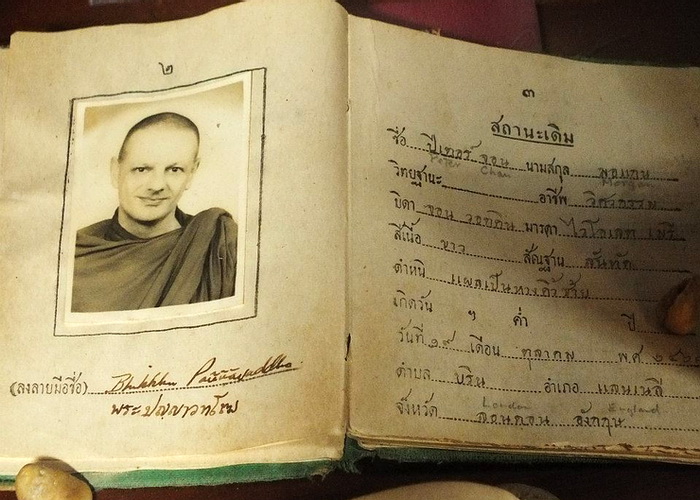 ๒
(ลงลายมือชื่อ) Bhikkhu Paññāvaddho
พระปญฺญาวฑฺโฒ
๓
สถานะเดิม
ชื่อ ปีเตอร์ จอน นามสกุล มอแกน
Peter Morgan
วิทยฐานะ อาชีพ วิศวกรรม
บิดา จอน มารดา ไวโอเลต
สีเนื้อ ขาว สัณฐาน สันทัด
ตำหนิ แผลเป็นหางคิ้วซ้าย
เกิดวัน ฯ ค่ำ ปี
วันที่ ๑๙ เดือน ตุลาคม พ.ศ.
ตำบล อำเภอ
London England
จังหวัด ลอนดอน อังกฤษ